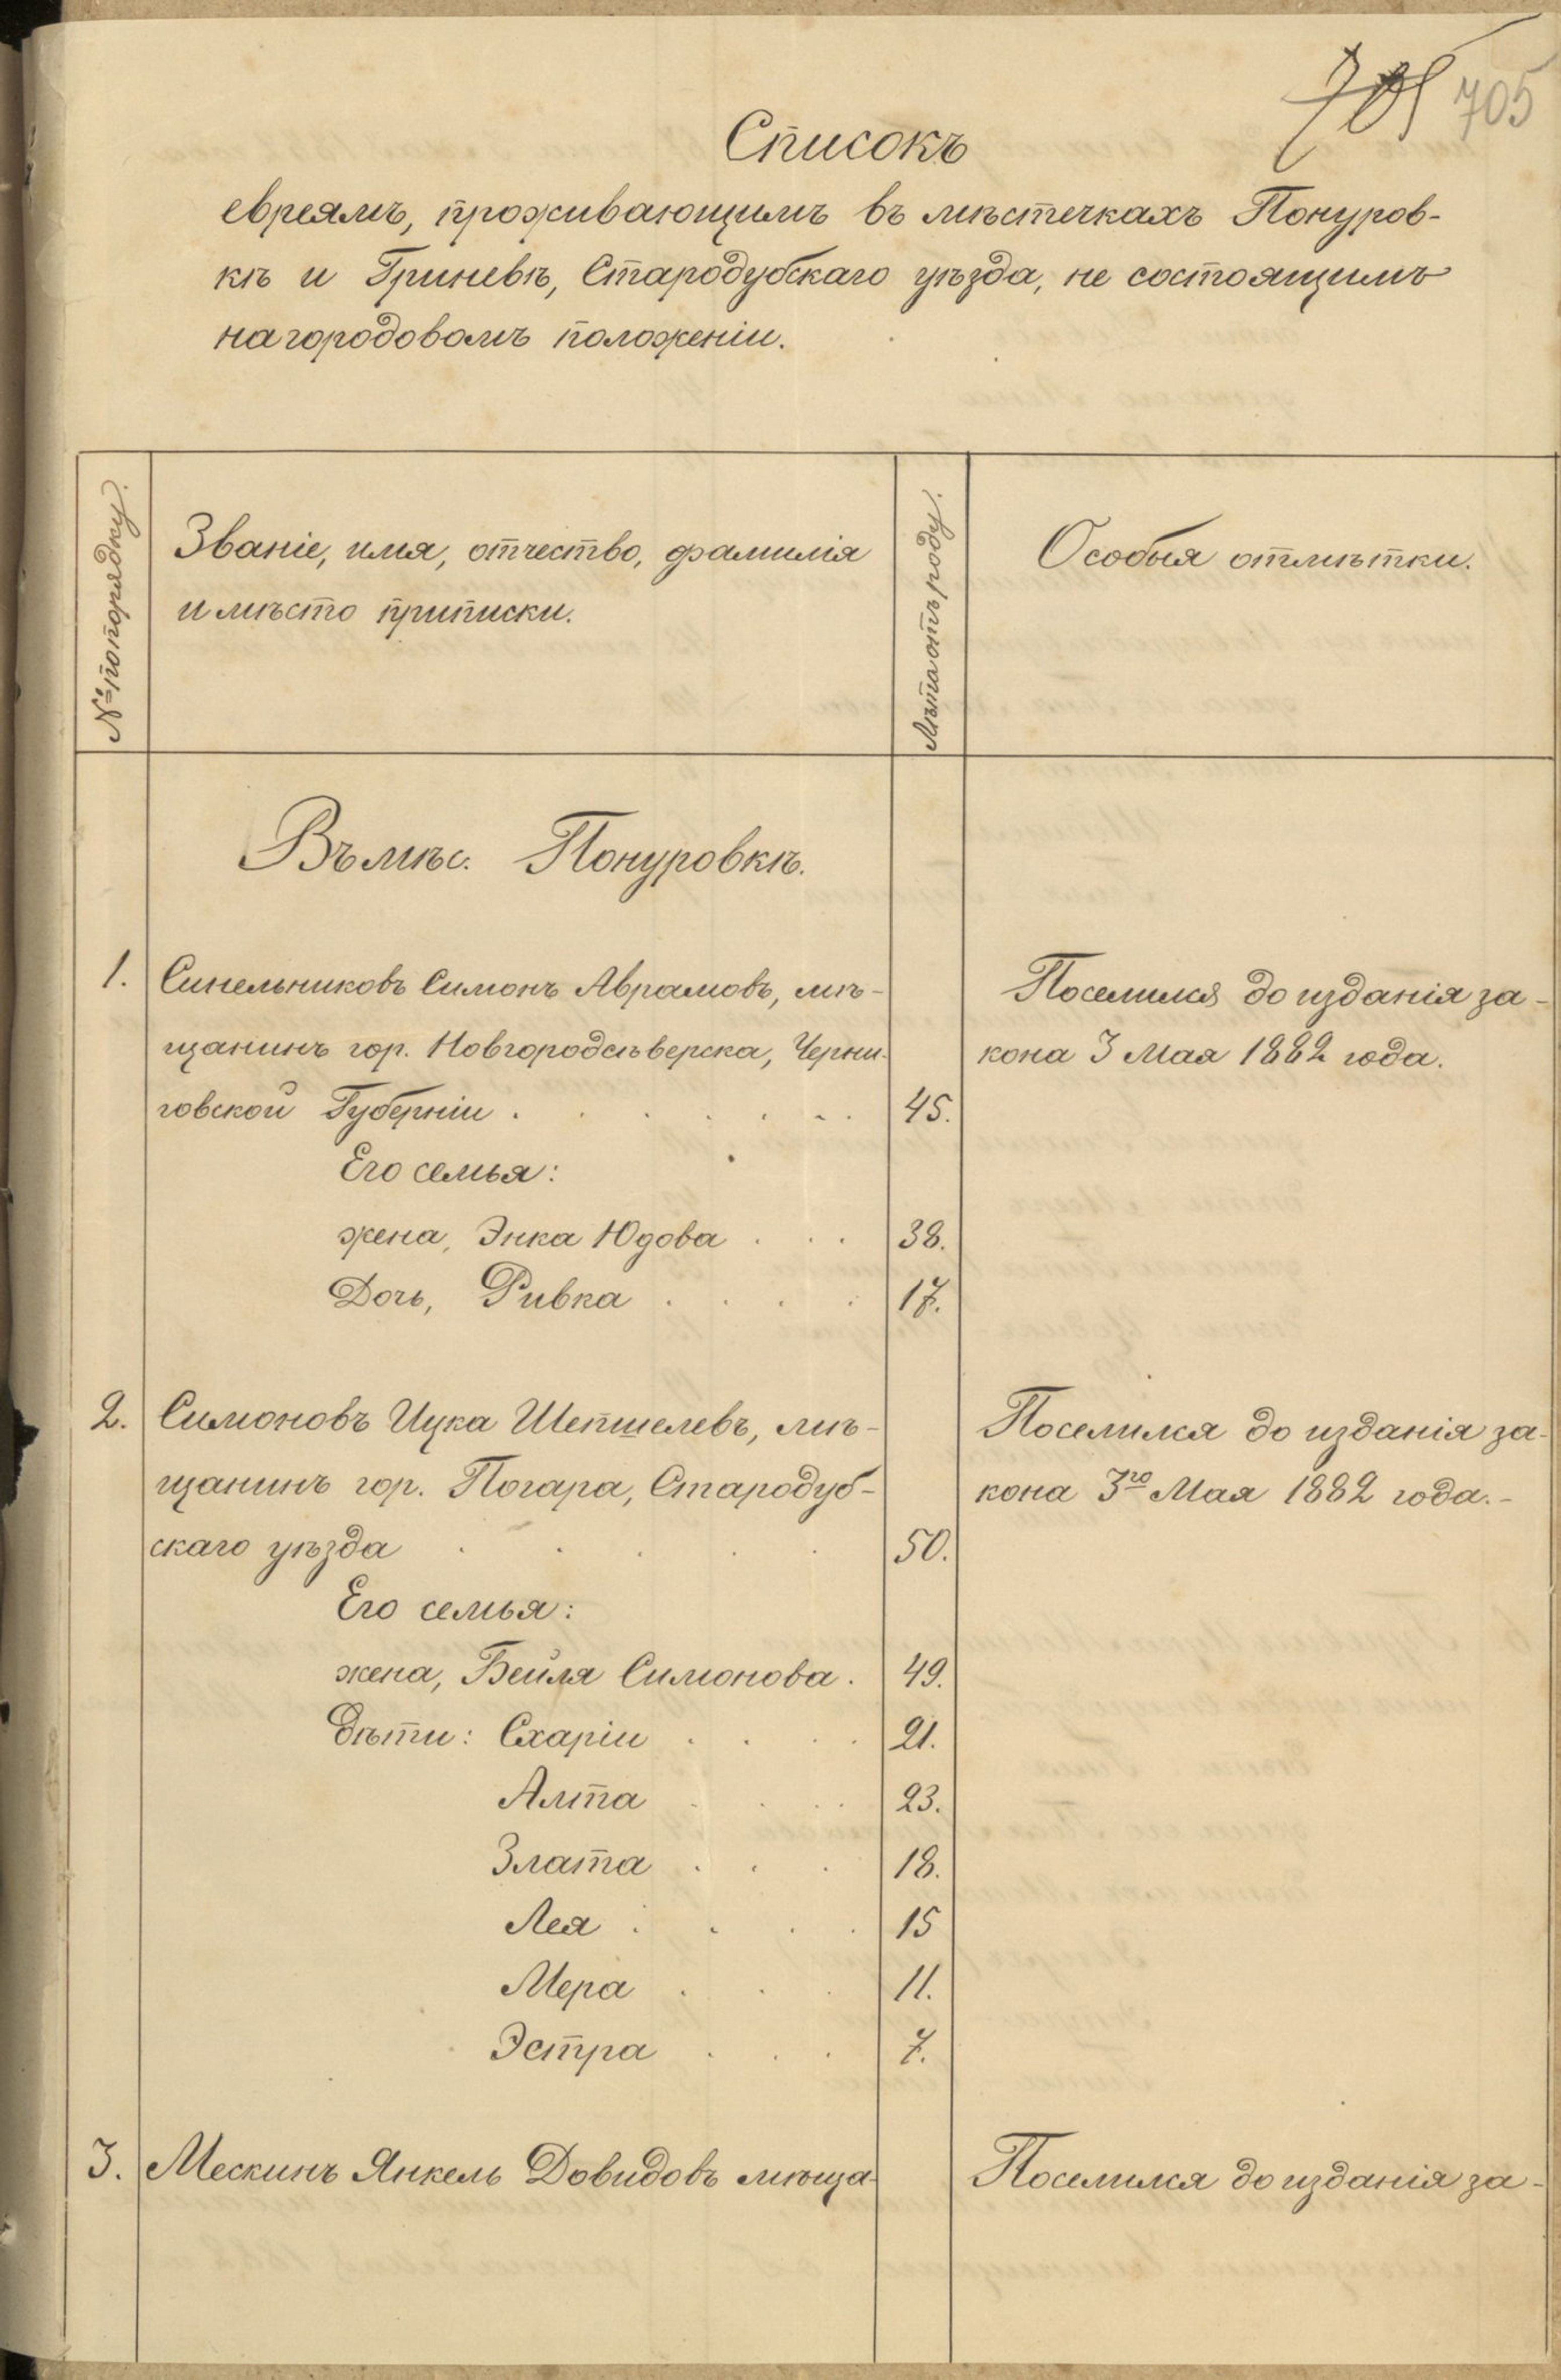 705 705
Списокъ
евреямъ, проживающимъ въ мѣстечкахъ Понуров-
кѣ и Гриневѣ, Стародубскаго уѣзда, не состоящимъ
на городовомъ положеніи.
№ по порядку.
Званіе, имя, отчество, фамилія
и мѣсто приписки.
Лѣта отъ роду.
Особыя отмѣтки.
Въ мѣс. Понуровкѣ.
1. Синельниковъ Симонъ Аврамовъ, мѣ- Поселился до изданія за-
щанинъ гор. Новгородсѣверска, Черни- кона 3 Мая 1882 года.
говской Губерніи . . . . . . 45.
Его семья:
жена, Энка Юдова . . . 38.
Дочь, Ривка . . . . 17.
2. Симоновъ Ицка Шепшелевъ, мѣ- Поселился до изданія за-
щанинъ гор. Погара, Стародуб- кона 3го Мая 1882 года.-
скаго уѣзда . . . . . 50.
Его семья:
жена, Бейля Симонова . 49.
Дѣти: Схаріи . . . . 21.
Алта . . . . 23.
Злата . . . 18.
Лея . . . . 15
Мера . . . 11.
Эстра . . . 7.
3. Мескинъ Янкель Довидовъ мѣща- Поселился до изданія за-